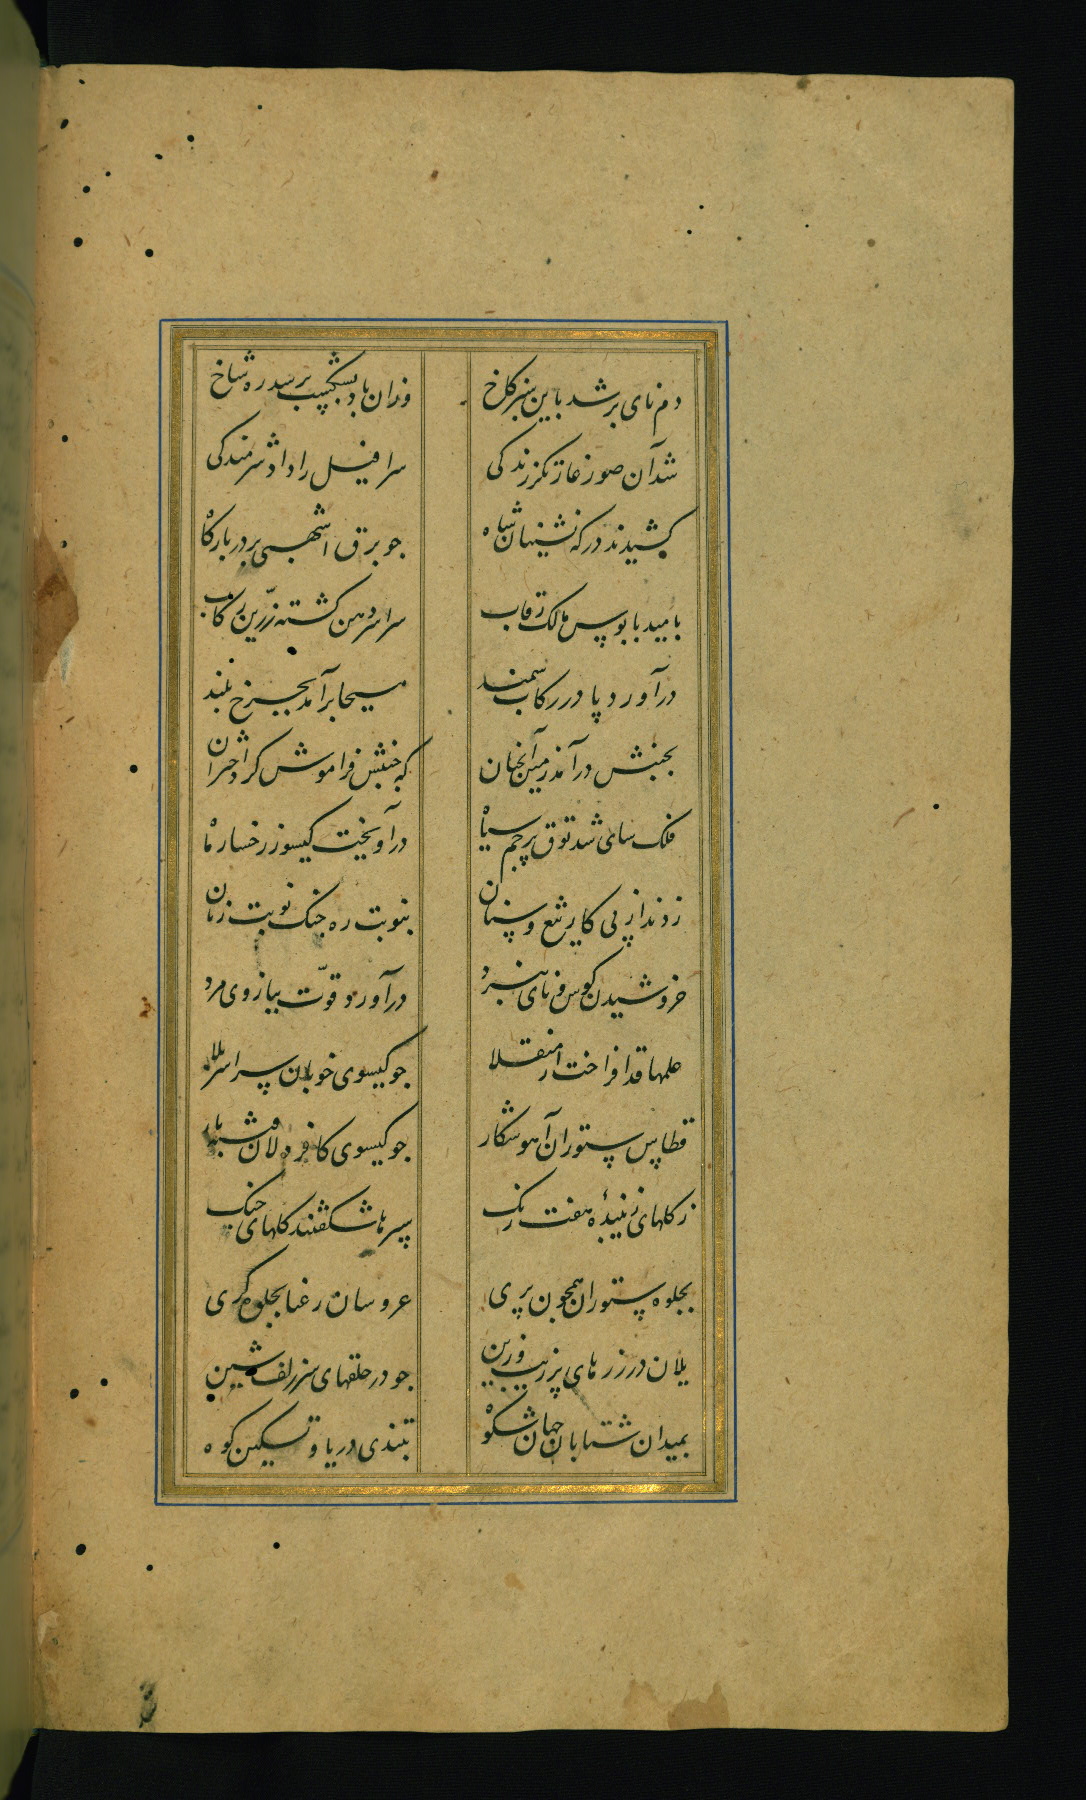 دم نای بر شد باین سبز کاخ
وزان باد بشکست بر سدره شاخ
شد آن صور غارتکر زندکی
سرافیل را داد شرمندکی
کشیدند درکه نشینان شاه
جو برق اشهبی بر در بارکاه
بامید پابوس مالک رقاب
سراسر دهن کشته زرین رکاب
درآورد پا در رکاب سمند
مسیحا برآمد بجرخ بلند
بجنبش درآمد زمین آنجنان
که جنبش فراموش کرد اختران
فلک سای شد توق پرچم سیاه
درآویخت کیسو ز رخسار ماه
زدند از پی کار تیغ و سنان
بنوبت ره جنک نوبت زنان
خروشیدن کوس و نای نبرد
درآورد قوّت ببازوی مرد
علمها قد افراخت از منقلا
جو کیسوی خوبان سراسر بلا
قطاس ستوران آهو شکار
جو کیسوی کافر دلان
ز کلهای زیبنده هفت رنک
سپرها شکفتند کلهای جنک
بجلوه ستوران همچون پری
عروسان رعنا بجلوه کری
یلان در زرههای پر زیب و زین
جو در حلقهای سر زلف شین
بمیدان شتابان جهان شکوه
بتندی دریا و تسکین کوه